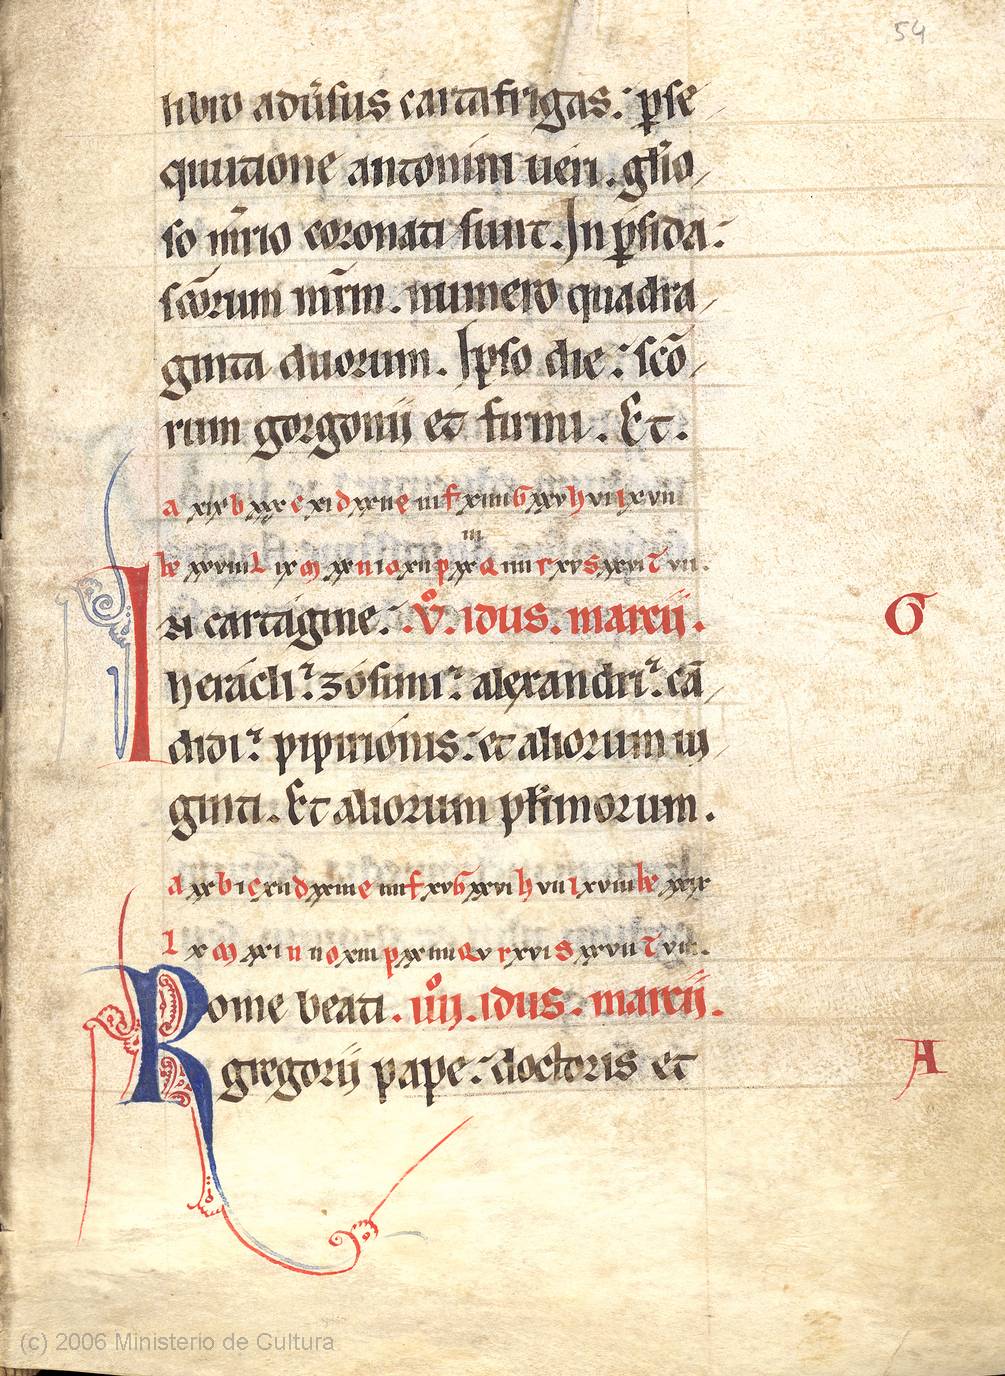 54
libro adũsus cartafrigas. ꝑse
quutione antonini ueri. gl̃io
so mr̃io coronati sunt. In ꝑsida.
scõrum mr̃m. numero quadra
ginta duorum. Ipso die. scõ
rum gorgonij et firmi. Et.
a xix b xxx c xi d xxii e iii f xiiii G xxv h vi i xvii
iii
ke xxviii L ix M xx n i o xii p xx Q iiii r xv s xxvi t vii.
In cartagine. .Vº. idus. marcij. G
heracli. zosimi. alexandri. cã
didi. pipirionis. et aliorum ui
ginti. Et aliorum pl̃imorum.
a xx b i c xii d xxiii e iiii f xv G xxvi h vii i xviii ke xxix
L x M xxi n ii o xiii p xxiiii Q v r xvi s xxvii t viii.
Rome beati. iiijº. idus. marcij.
gregorij pape. doctoris et A
(c) 2006 Ministerio de Cultura